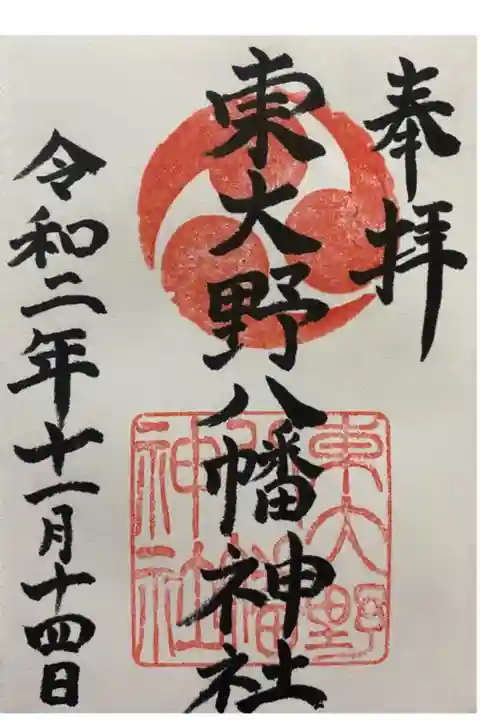 奉拝
東大野八幡神社
令和二年十一月十四日
東大野
八幡
神社